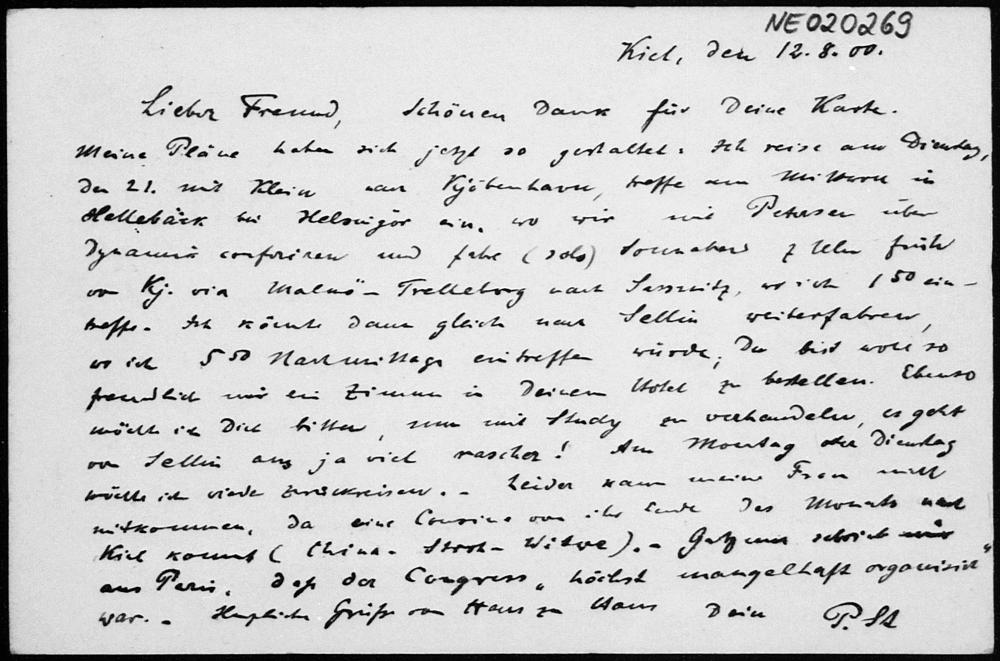 NE020269
Kiel, den 12.8.00.
Lieber Freund, Schönen Dank für Deine Karte.
Meine Pläne haben sich jetzt so gestaltet: Ich reise am Dienstag,
den 21. mit Klein nach Kjöbenhavn, treffe am Mittwoch in
Hellebäck bei Helsingör ein, wo wir mit Petersen über
Dynamis conferiren und fahre (solo) Sonnabend 7 Uhr früh
von Kj. via Malmö-Trelleborg nach Sassnitz, wo ich 1 50 ein-
treffe. Ich könnte dann gleich nach Sellin weiterfahren,
wo ich 5 50 Nachmittags eintreffen würde; Du bist wohl so
freundlich mir ein Zimmer in Deinem Hotel zu bestellen. Ebenso
möchte ich Dich bitten, nun mit Study zu verhandeln, es geht
von Sellin aus ja viel rascher! Am Montag oder Dienstag
möchte ich wieder zurückreisen. - Leider kann meine Frau nicht
mitkommen, da eine Cousine von ihr Ende des Monats nach
Kiel kommt (China-Stroh-Witwe). - Gutzmer schrieb mir
aus Paris, daß der Congress „höchst mangelhaft organisirt"
war. - Herzliche Grüße von Haus zu Haus Dein P. St